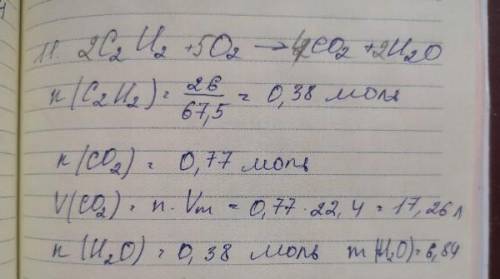 11. 2C2H2 + 5O2 → 4CO2 + 2H2O
n(C2H2) = 26/67,5 = 0,38 моль
n(CO2) = 0,77 моль
V(CO2) = n · Vm = 0,77 · 22,4 = 17,26 л
n(H2O) = 0,38 моль m(H2O) = 6,84